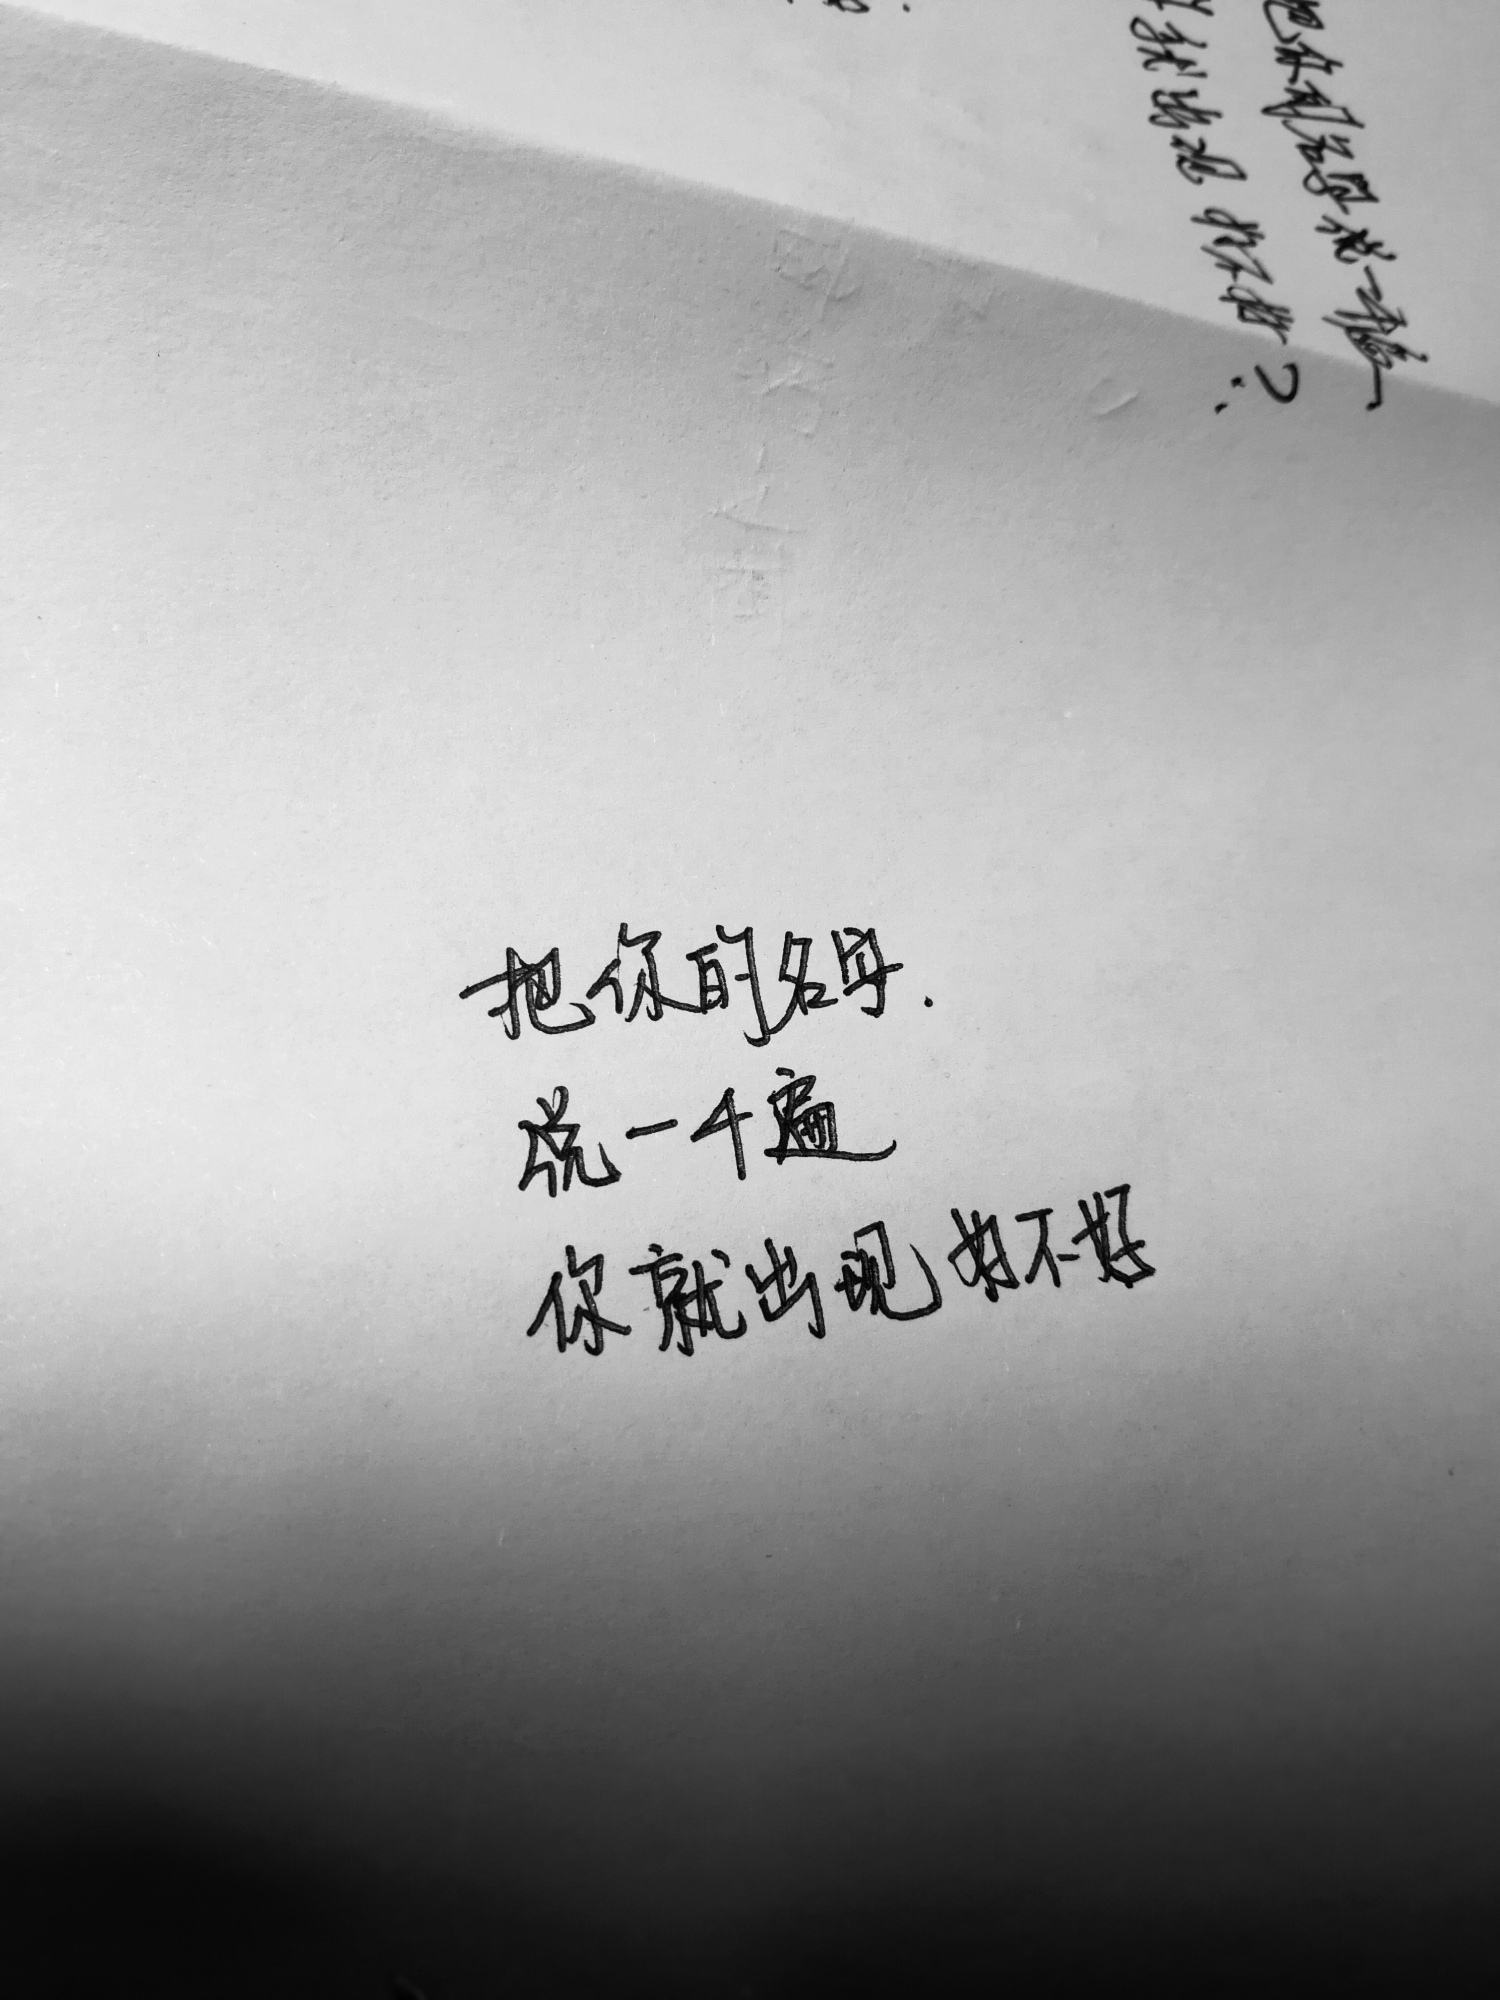 把你的名字.
说一千遍
你就出现好不好
把你的名字说一千遍
就出现 好不好?